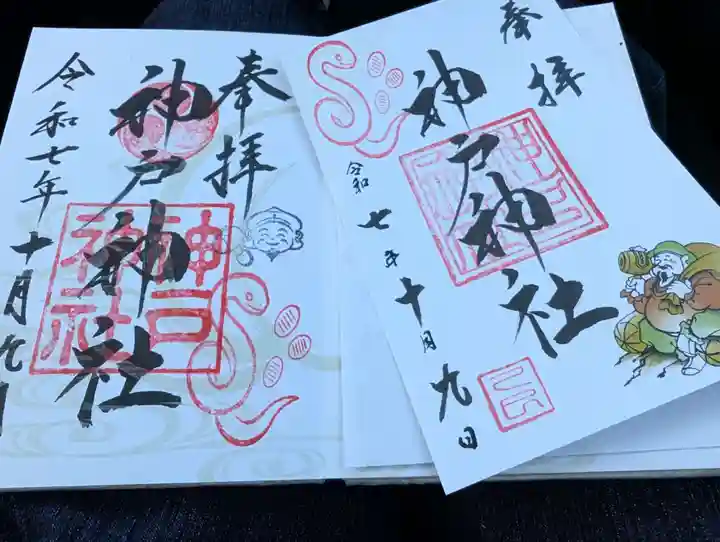 奉拝
神戸神社
神戸神社
令和七年十月九日
奉拝
神戸神社
令和七年十月九日